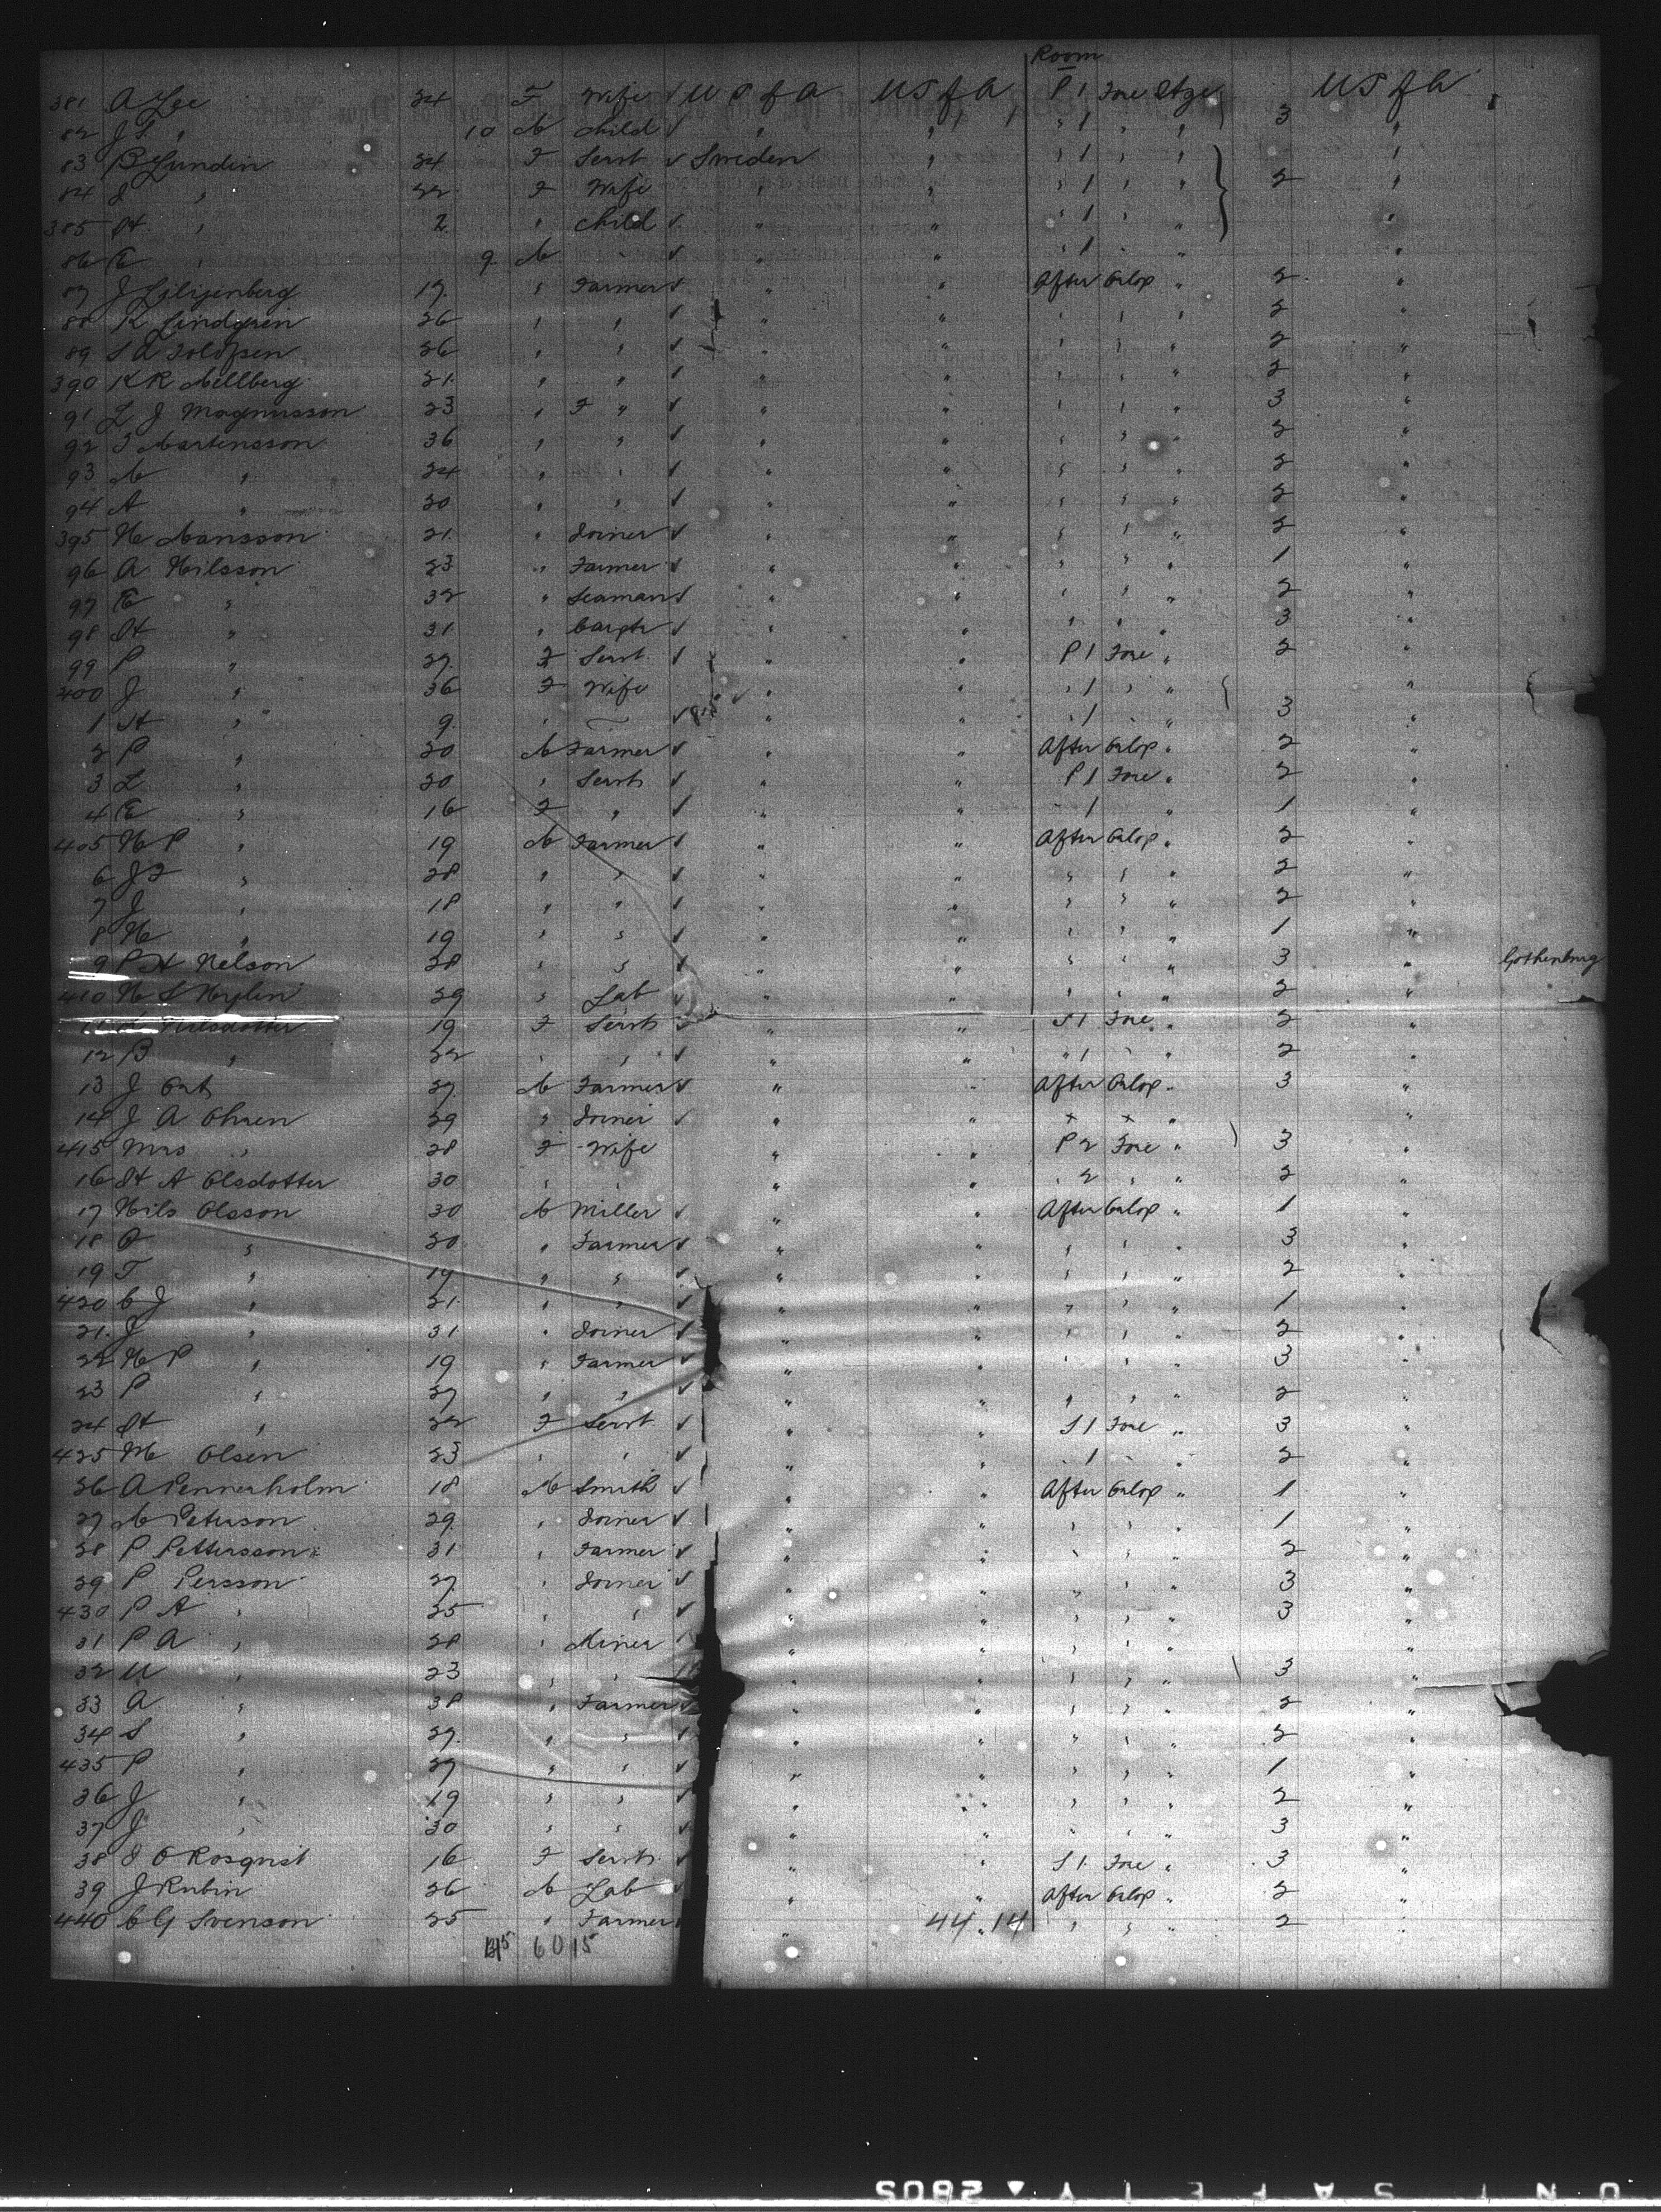 Room
381 A Lee 24 F Wife ✓ U S of A U S of A P 1 Fore Stge U S of A
82 J S " 10 M Child ✓ " " " 1 " " 3 "
83 B Lundin 24 F Servt ✓ Sweden " " 1 " " "
84 J " 22 F Wife " " " 1 " " 2 "
385 H " 2 " Child ✓ " " " 1 " " "
86 E " 9 M " ✓ " " " 1 " "
87 J Liljenberg 19 " Farmer ✓ " " After Orlop " 2 "
88 K Lindgren 26 " " ✓ " " " " " 2 "
89 26 " " ✓ " " " " " 2 "
390 K R Mellberg 21 " " ✓ " " " " " 2 "
91 L J Magnusson 23 " F " ✓ " " " " " 3 "
92 F Martensson 36 " " ✓ " " " " " 2 "
93 M " 24 " " ✓ " " " " " 2 "
94 A " 20 " " ✓ " " " " " 2 "
395 N Mansson 21 " Joiner ✓ " " " " " 2 "
96 A Nilsson 23 " Farmer ✓ " " " " " 1 "
97 E " 32 " Seaman ✓ " " " " " 2 "
98 H " 31 " Carptr ✓ " " " " " 3 "
99 P " 27 F Servt ✓ " " P 1 Fore " 2 "
400 J " 36 F Wife " " " 1 " " "
1 H " 9 " ✓ " " " 1 " " 3 "
2 P " 20 M Farmer ✓ " " After Orlop " 2 "
3 L " 20 " Servt ✓ " " P 1 Fore " 2 "
4 E " 16 F " ✓ " " " 1 " 1 "
405 N P " 19 M Farmer ✓ " " After Orlop " 2 "
6 J F " 28 " " ✓ " " " " " 2 "
7 J " 18 " " ✓ " " " " " 2 "
8 N " 19 " " ✓ " " " " " 1 "
9 P H Nelson 28 " " ✓ " " " " " 3 " Gothenburg
410 N S Nylin 29 " Lab ✓ " " " " " 2 "
11 19 F Servt ✓ " " 1 Fore " 2 "
12 B " 22 " " ✓ " " " 1 " " 2 "
13 J 27 M Farmer ✓ " " After Orlop " 3 "
14 J A Ohren 29 " Joiner ✓ " " x x " "
415 Mrs " 28 F Wife " " P 2 Fore " 3 "
16 H A Olsdotter 30 " " " " " 2 " " 2 "
17 Nils Olsson 30 M Miller ✓ " " After Orlop " 1 "
18 O " 20 " Farmer ✓ " " " " " 3 "
19 T " 19 " " ✓ " " " " " 2 "
420 C J " 21 " " ✓ " " " " " 1 "
21 J " 31 " Joiner ✓ " " " " " 2 "
22 N P " 19 " Farmer ✓ " " " " " 3 "
23 P " 27 " " ✓ " " " " " 2 "
24 H " 22 F Servt ✓ " " S 1 Fore " 3 "
425 M Olsen 23 " " ✓ " " " 1 " 2 "
26 A Pennerholm 18 M Smith ✓ " " After Orlop " 1 "
27 M Peterson 29 " Joiner ✓ " " " " " 1 "
28 P Pettersson 31 " Farmer ✓ " " " " " 2 "
29 P Persson 27 " Joiner ✓ " " " " " 3 "
430 P A " 25 " " ✓ " " " " " 3 "
31 P A " 28 " Miner " " " " " "
32 U " 23 " " " " " " " 3 "
33 A " 38 " Farmer ✓ " " " " " 2 "
34 S " 27 " " ✓ " " " " " 2 "
435 P " 27 " " ✓ " " " " " 1 "
36 J " 19 " " ✓ " " " " " 2 "
37 J " 30 " " ✓ " " " " " 3 "
38 O Rosqvist 16 F Servt ✓ " " S 1 Fore " 3 "
39 J Rubin 26 M Lab " " After Orlop " 2 "
440 C G Svenson 25 " Farmer " 44.14 " " " 2 "
6015
SAFETY ▲ 2805